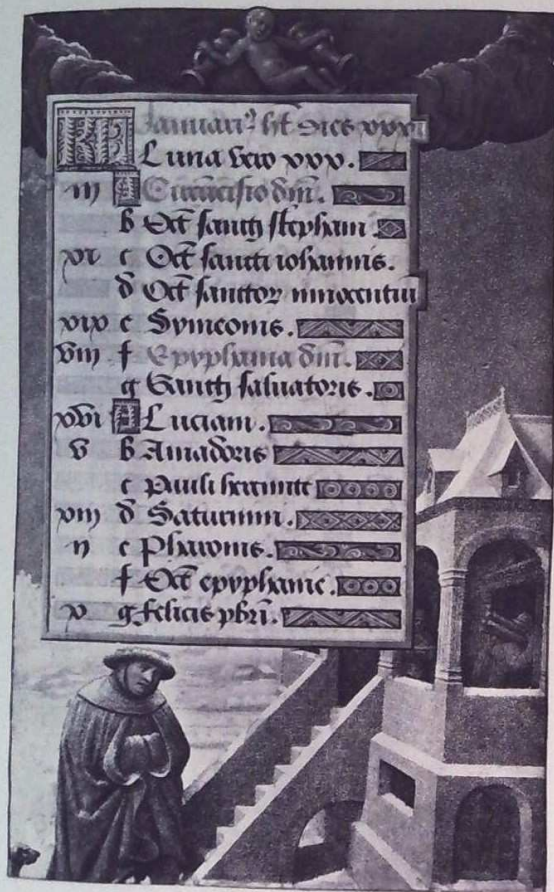 KL Januari9 ht dies xxxi
Luna vero xxx.
iij A Circuncisio dni.
b Oct sancti stephani
xi c Oct sancti iohannis.
d Oct sanctor innocentiu
xix e Symeonis.
viij f Epyphania dni.
g Sancti saluatoris.
xvi A Luciani.
v b Amadoris
c Pauli heremite
xiij d Saturnini.
ij e
f Oct epyphanie.
x g felicis pbri.